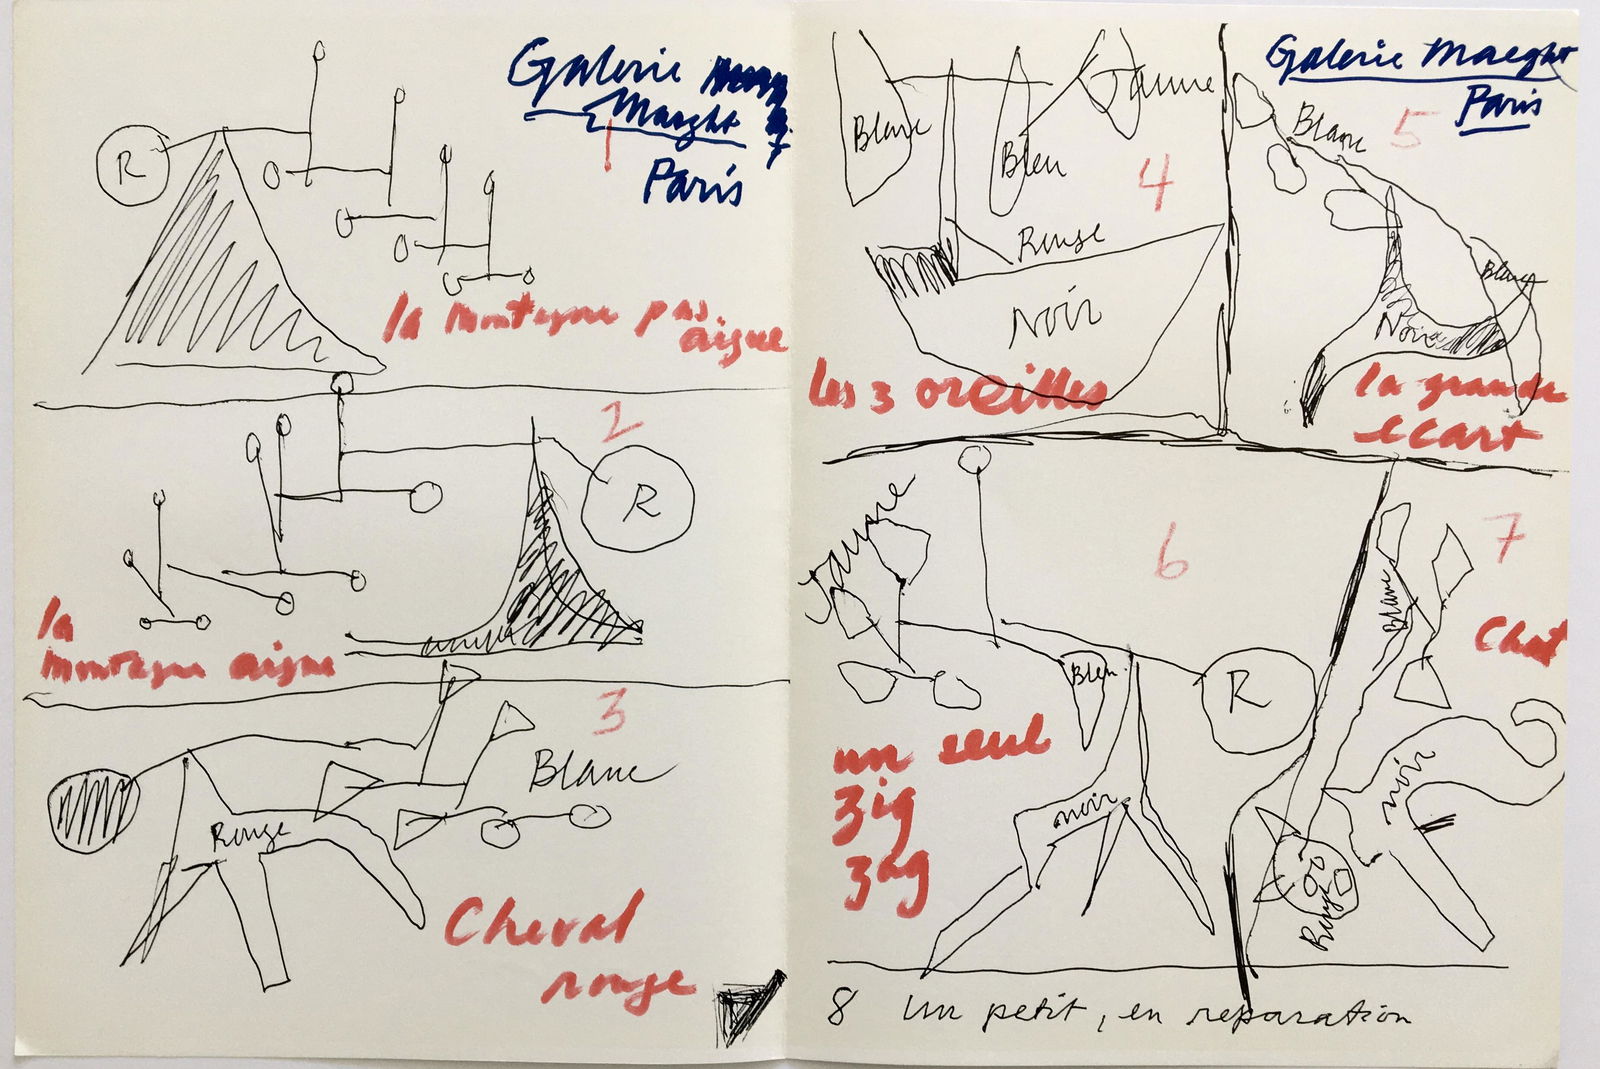 Galerie
Maeght
Paris
1
R
la montagne pas
aigue
2
R
la
montagne aigue
3
Blanc
Rouge
Cheval
rouge
Blanc
Jaune
Bleu
4
Rouge
Noir
les 3 oreilles
Galerie Maeght
Paris
5
Blanc
Blanc
Noir
la grande
ecart
Jaune
6
Bleu
R
un seul
zig
zag
noir
7
Blanc
Chat
noir
Rouge
8 un petit, en reparation